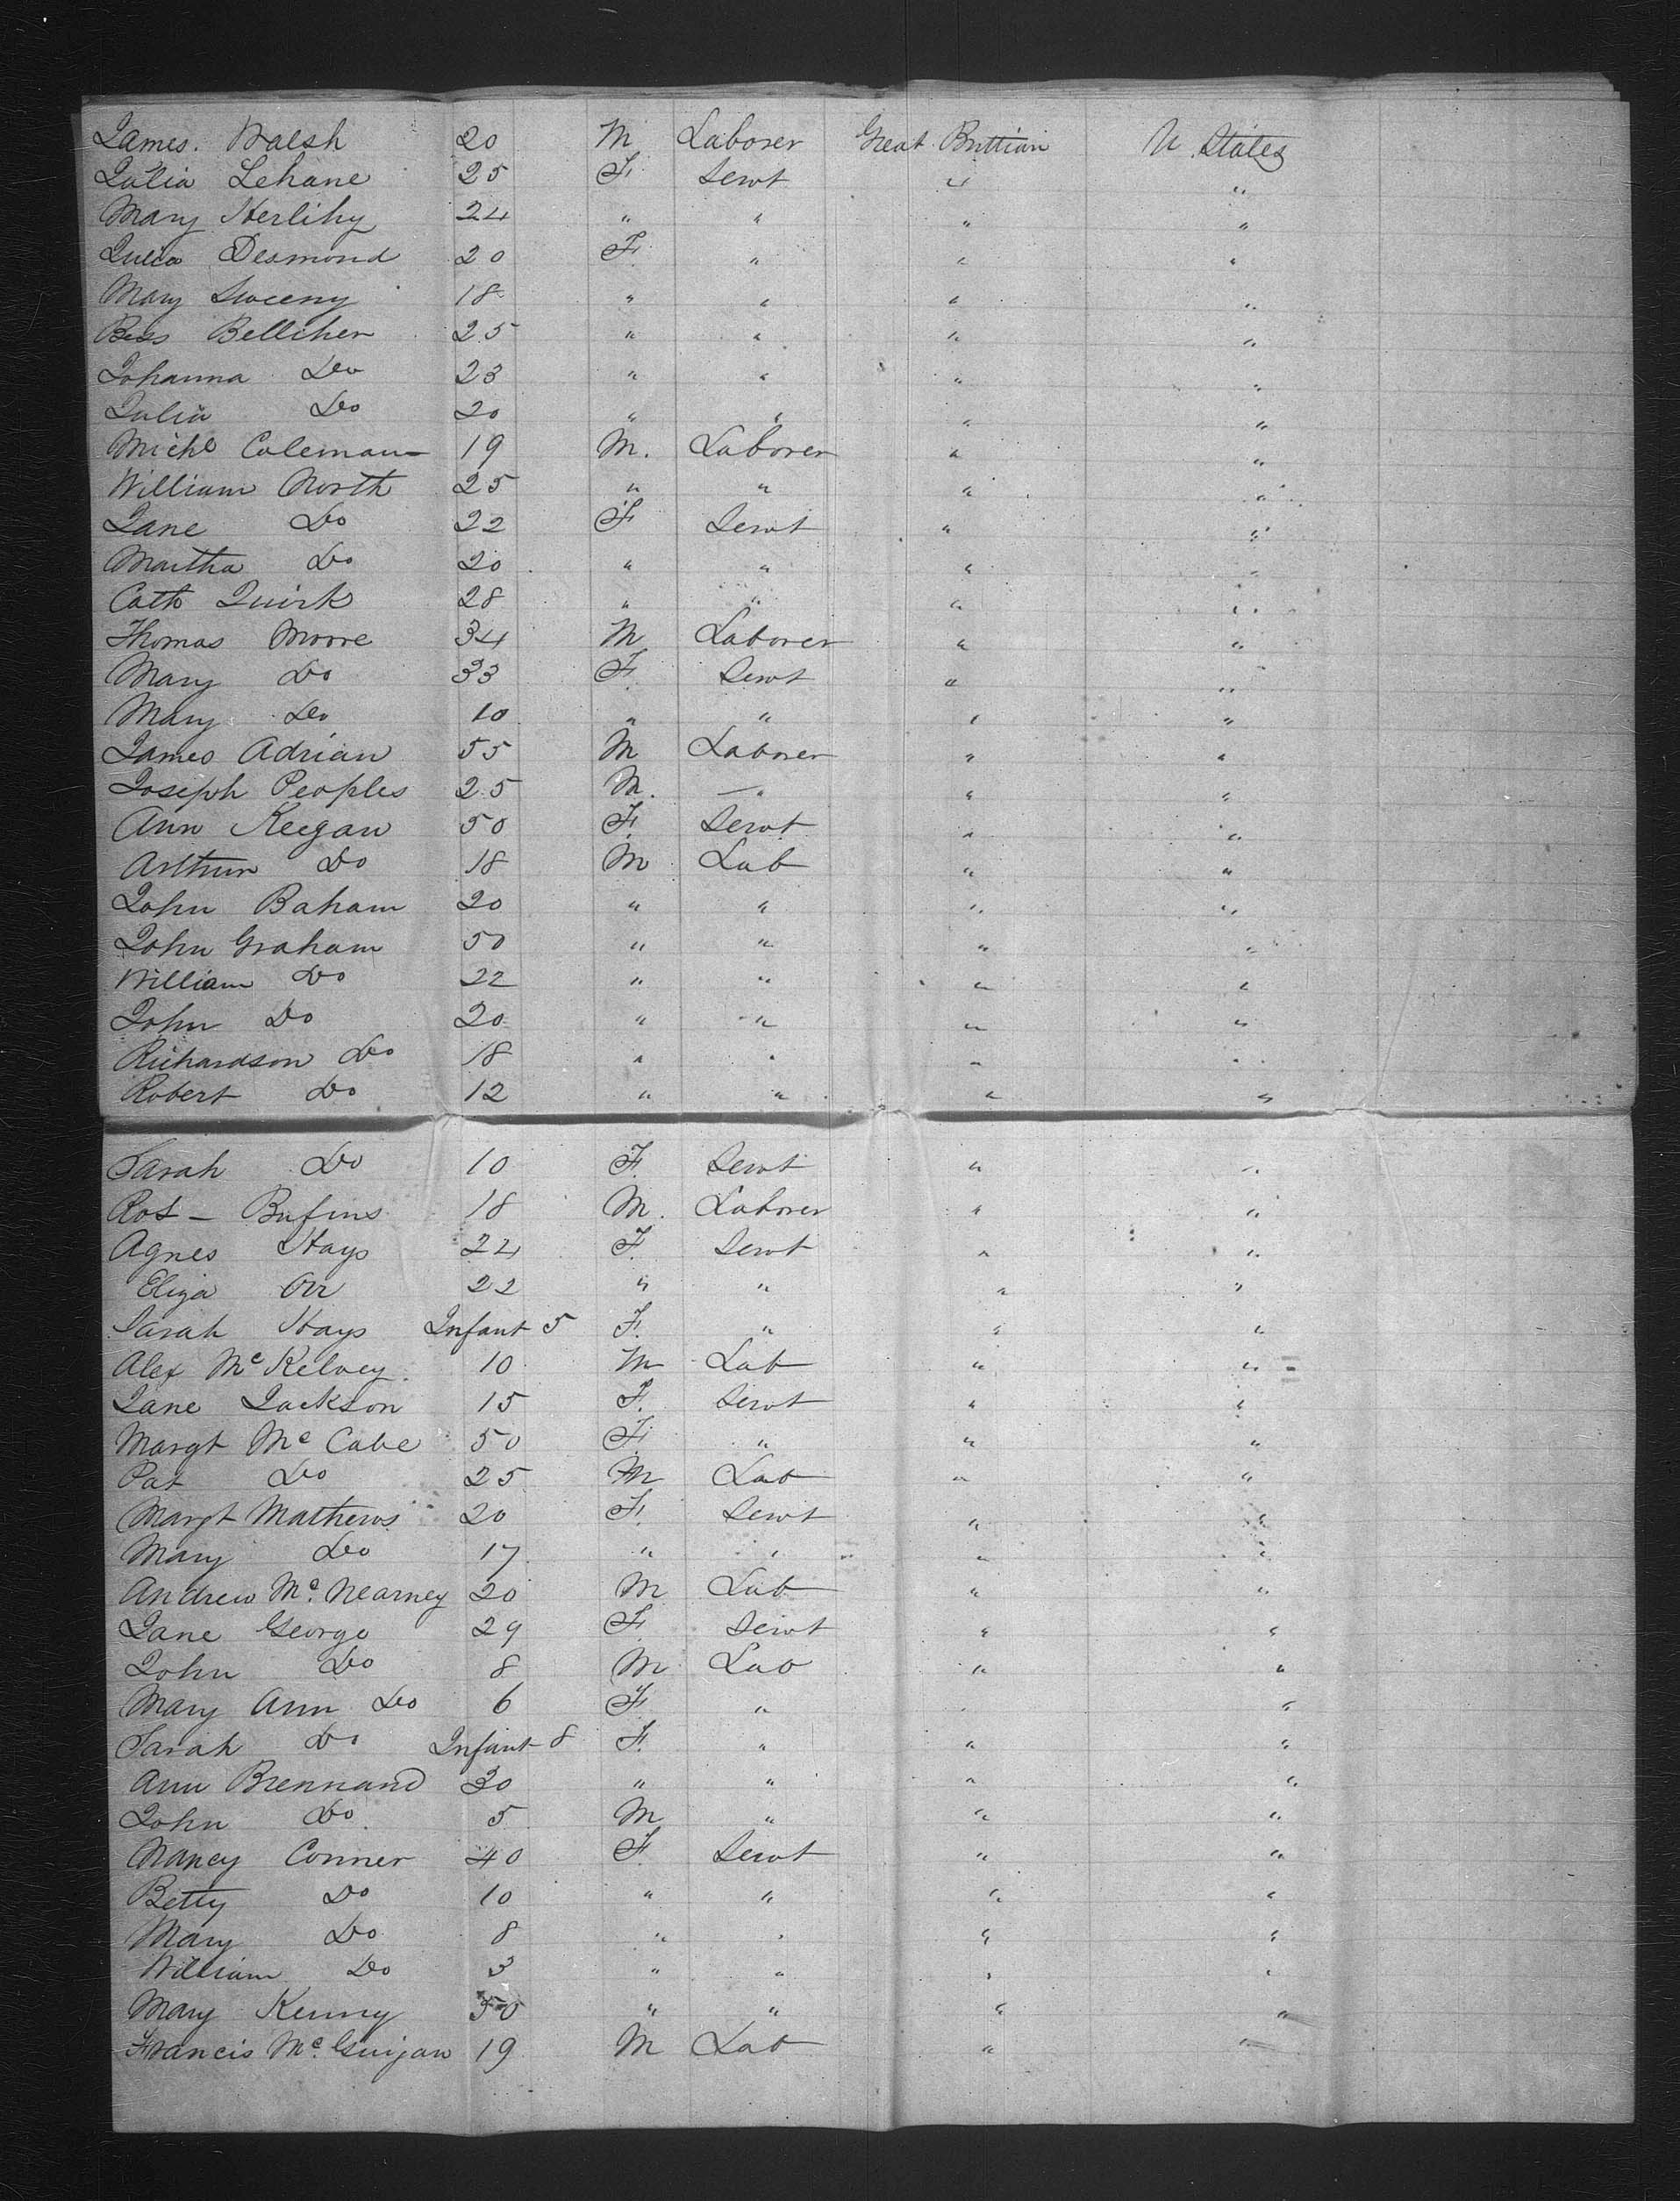 James. Walsh 20 M Laborer Great Brittian U. States
Julia Lehane 25 F. Servt " "
Mary Herlihy 24 " " " "
Julia Desmond 20 F. " " "
Mary Sweeny 18 " " " "
Bess Belliher 25 " " " "
Johanna Do 23 " " " "
Julia Do 20 " " " "
Michl Coleman 19 M. Laborer " "
William North 25 " " " "
Jane Do 22 F Servt " "
Martha Do 20 " " " "
Cath Quirk 28 " " " "
Thomas Moore 34 M Laborer " "
Mary Do 33 F. Servt " "
Mary Do 10 " " " "
James Adrian 55 M Laborer " "
Joseph Peoples 25 M. " " "
Ann Keegan 50 F. Servt " "
Arthur Do 18 M Lab " "
John Baham 20 " " " "
John Graham 50 " " " "
William Do 22 " " " "
John Do 20 " " " "
Richardson Do 18 " " " "
Robert Do 12 " " " "
Sarah Do 10 F. Servt " "
Rot - Bufins 18 M. Laborer " "
Agnes Hays 24 F. Servt " "
Eliza Orr 22 " " " "
Sarah Hays Infant 5 F. " " "
Alex McKelvey. 10 M Lab " "
Jane Jackson 15 F. Servt " "
Margt McCabe 50 F. " " "
Pat Do 25 M Lab " "
Margt Mathews 20 F. Servt " "
Mary Do 17 " " " "
Andrew Mc. Nearney 20 M Lab " "
Jane George 29 F Servt " "
John Do 8 M Lab " "
Mary Ann Do 6 F. " " "
Sarah Do Infant 8 F. " " "
Ann Brennand 30 " " " "
John Do 5 M " " "
Nancy Conner 40 F Servt " "
Betty Do 10 " " " "
Mary Do 8 " " " "
William Do 3 " " " "
Mary Kenny 50 " " " "
Francis Mc. Guigan 19 M Lab " "